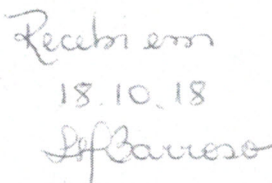 Recebi em
18.10.18
Barroso